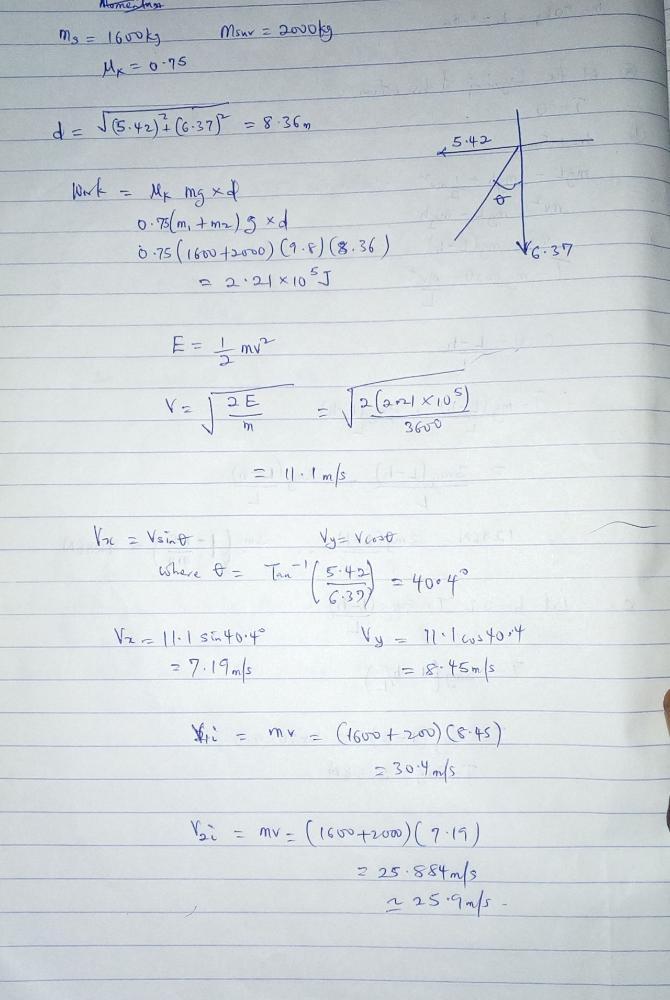 Momentum
ms = 1600kg Msuv = 2000kg
μk = 0.75
d = √(5.42)² + (6.37)² = 8.36m
5.42
θ
6.37
Work = μk mg × d
0.75(m1 + m2) g × d
0.75(1600+2000)(9.8)(8.36)
= 2.21 × 10⁵J
E = 1/2 mv²
V = √2E/m = √2(2.21 × 10⁵)/3600
= 11.1 m/s
Vx = Vsinθ Vy = Vcosθ
where θ = Tan⁻¹(5.42/6.37) = 40.4°
Vx = 11.1 sin 40.4° Vy = 11.1 cos 40.4
= 7.19m/s = 8.45m/s
V1i = mv = (1600 + 200)(8.45)
= 30.4 m/s
V2i = mv = (1600+2000)(7.19)
= 25.884m/s
≃ 25.9m/s -